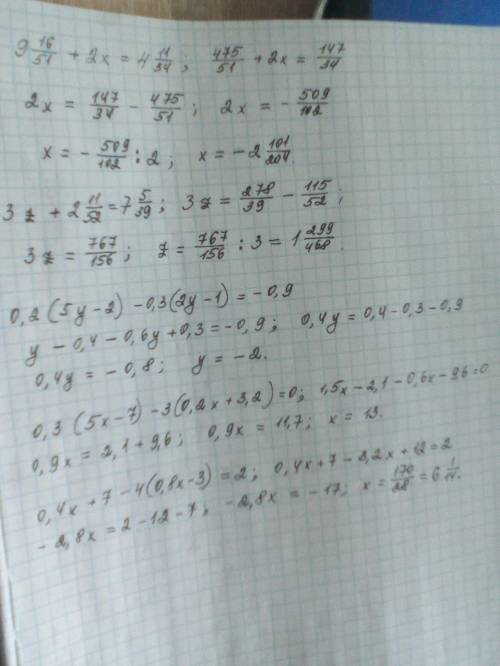 9 16/51 + 2x = 4 11/34; 475/51 + 2x = 147/34
2x = 147/34 - 475/51; 2x = - 509/102
x = - 509/102 : 2; x = -2 101/204.
3z + 2 11/52 = 7 5/39; 3z = 278/39 - 115/52;
3z = 767/156; z = 767/156 : 3 = 1 299/468.
0,2(5y-2) - 0,3(2y-1) = -0,9
y - 0,4 - 0,6y + 0,3 = -0,9; 0,4y = 0,4 - 0,3 - 0,9
0,4y = -0,8; y = -2.
0,3(5x-7) - 3(0,2x+3,2) = 0; 1,5x - 2,1 - 0,6x - 9,6 = 0
0,9x = 2,1 + 9,6; 0,9x = 11,7; x = 13.
0,4x + 7 - 4(0,8x-3) = 2; 0,4x + 7 - 3,2x + 12 = 2
-2,8x = 2 - 12 - 7; -2,8x = -17; x = 170/28 = 6 1/14.